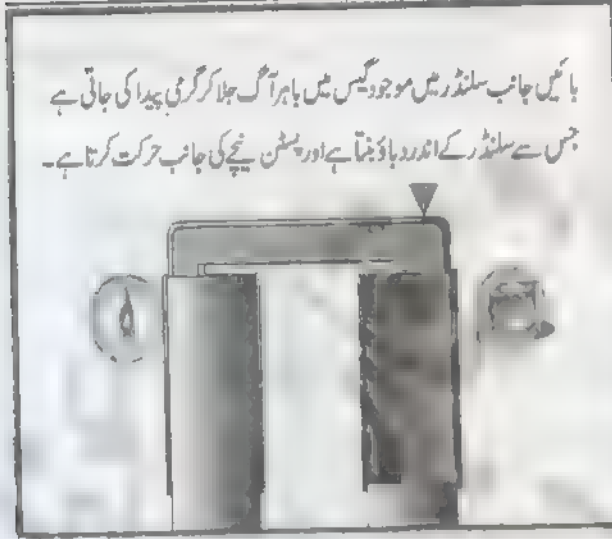 بائیں جانب سلنڈر میں موجود گیس میں باہر آگ جلا کر گرمی پیدا کی جاتی ہے
جس سے سلنڈر کے اندر دباؤ بنتا ہے اور پسٹن نیچے کی جانب حرکت کرتا ہے۔